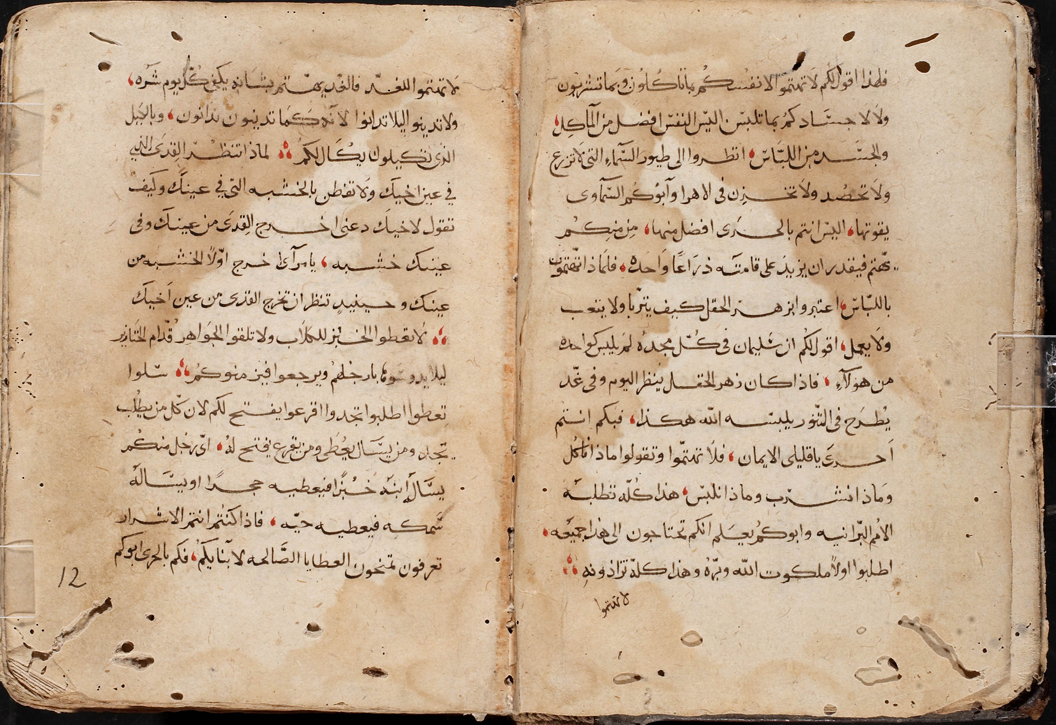 فلهذا اقول لكم لا تهتموا لانفسكم بماتاكلون وبماتشربون
ولا لاجسادكم بما تلبس اليس النفس افضل من الماكل
والجسد من اللباس انظروا الى طيور السماء التى لا تزرع
ولا تحصد ولا تخزن فى الاهرا وابوكم السماوى
يقوتها اليس انتم بالحرى افضل منها من منكم
يهتم فيقدر ان يزيد على قامته ذراعا واحده فلماذا تهتمون
باللباس اعتبروا بزهر الحقل كيف يتربا ولا يتعب
ولا يعمل اقول لكم ان سليمان فى كل مجده لم يلبس كواحده
من هولاء فاذا كان زهر الحقل ينظر اليوم وفى غد
يطرح فى التنور يلبسه الله هكذا فبكم انتم
احرى يا قليلى الايمان فلا تهتموا وتقولوا ماذا ناكل
وماذا نشرب وماذا نلبس هذا كله تطلبه
الامم البرانيه وابوكم يعلم انكم تحتاجون الى هذا جميعه
اطلبوا اولا ملكوت الله وبره وهذا كله تزادونه
لا تهتموا
لا تهتموا للغد فالغد يهتم بشانه يكفى كل يوم شره
ولا تدينوا ليلا تدانوا لانه كما تدينون تدانون وبالكيل
الذى تكيلون يكال لكم لماذا تنظر القذى الذى
فى عين اخيك ولا تفطن بالخشبه التى فى عينك وكيف
تقول لاخيك دعنى اخرج القذى من عينك وفى
عينك خشبه يا مرآى اخرج اولا الخشبه من
عينك وحينيد تنظر ان تخرج القذى من عين اخيك
لا تعطوا الخبز للكلاب ولا تلقوا الجواهر قدام الخنازير
ليلا بارجلهم ويرجعوا فيمزقوكم سلوا
تعطوا اطلبوا تجدوا اقرعوا يفتح لكم لان كل من يطلب
يجد ومن يسال يعطى ومن يقرع يفتح له اى رجل منكم
يساله ابنه خبزا فيعطيه حجرا او يساله
سمكه فيعطيه حيه فاذا كنتم انتم الاشرار
تعرفون تمنحون العطايا الصالحه لابنايكم فكم بالحرى ابوكم
12